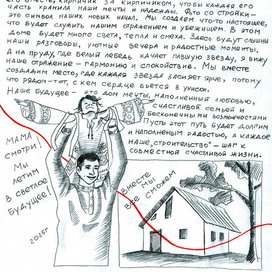 его вместе, кирпичик за кирпичиком, чтобы каждая его
часть хранила наши мечты и надежды. Это со стройки-
это символ наших новых начал. Мы создаём что-то настоящее,
что будет служить нашим отражением и убежищем. В этом
доме будет много света, тепла и смеха. Здесь будут слышны
наши разговоры, уютные вечера и радостные моменты.
А на пруду, где белый лебедь качает павшую звезду, я вижу
наше отражение - гармонию и спокойствие. Мы вместе
создадим место, где каждая звезда засияет ярче, потому
что рядом - тот, с кем сердце бьётся в унисон.
Наше будущее - это дом мечты, наполненный любовью,
счастливой семьей и
бесконечными возможностями
Пусть этот путь будет долгим
и наполненным радостью, а каждое
наше "строительство" - шаг к
совместной счастливой жизни.
МАМА
СМОТРИ!
Мы
ЛЕТИМ
В СВЕТЛОЕ
БУДУЩЕЕ!
2025г
Вместе
мы
всё сможем